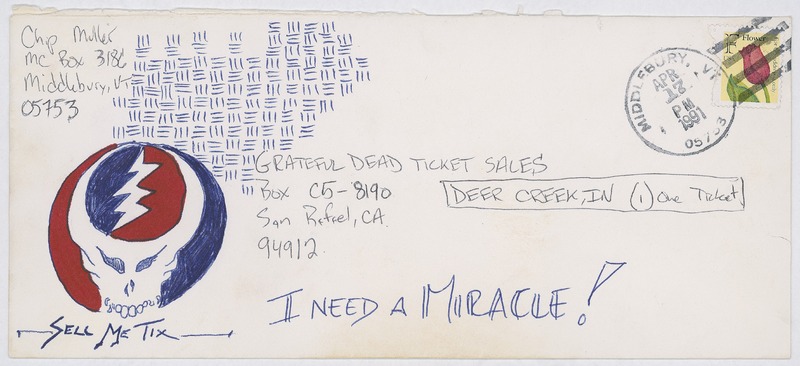 Chip Muller
MC Box 3186
Middlebury, VT
05753
F Flower
MIDDLEBURY, VT
APR
17
P.M
1991
05753
GRATEFUL DEAD TICKET SALES
BOX C5-8190
San Rafael, CA
94912
DEER CREEK, IN (1) One Ticket
I NEED A MIRACLE!
SELL ME TIX